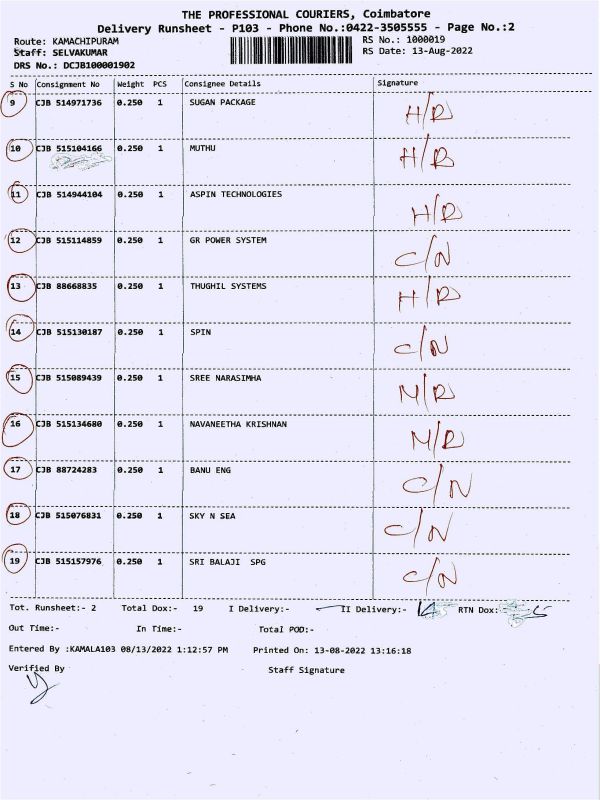 THE PROFESSIONAL COURIERS, Coimbatore
Delivery Runsheet - P103 - Phone No.:0422-3505555 - Page No.:2
Route: KAMACHIPURAM RS No.: 1000019
Staff: SELVAKUMAR RS Date: 13-Aug-2022
DRS No.: DCJB100001902
S No Consignment No Weight PCS Consignee Details Signature
9 CJB 514971736 0.250 1 SUGAN PACKAGE H/R
10 CJB 515104166 0.250 1 MUTHU H/R
11 CJB 514944104 0.250 1 ASPIN TECHNOLOGIES H/R
12 CJB 515114859 0.250 1 GR POWER SYSTEM C/N
13 CJB 88668835 0.250 1 THUGHIL SYSTEMS H/R
14 CJB 515130187 0.250 1 SPIN C/N
15 CJB 515089439 0.250 1 SREE NARASIMHA M/R
16 CJB 515134680 0.250 1 NAVANEETHA KRISHNAN M/R
17 CJB 88724283 0.250 1 BANU ENG C/N
18 CJB 515076831 0.250 1 SKY N SEA C/N
19 CJB 515157976 0.250 1 SRI BALAJI SPG C/N
Tot. Runsheet:- 2 Total Dox:- 19 I Delivery:- II Delivery:- 14 RTN Dox:- 5
Out Time:- In Time:- Total POD:-
Entered By :KAMALA103 08/13/2022 1:12:57 PM Printed On: 13-08-2022 13:16:18
Verified By Staff Signature